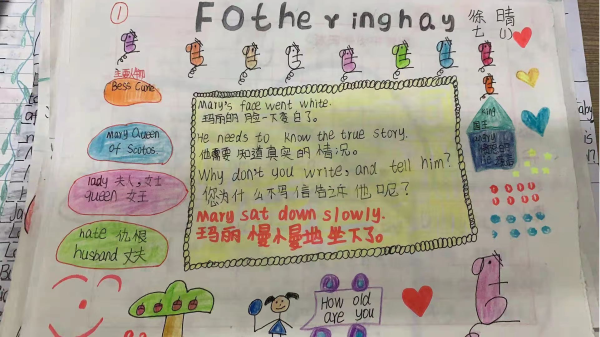 ①
Fotheringhay
徐 晴
七 (1)
主要人物
Bess Curle
Mary Queen
of Scotos
lady 夫人,女士
queen 女王
hate 仇恨
husband 丈夫
Mary's face went white.
玛丽的 脸一下变白了。
He needs to know the true story.
他需要 知道真实的 情况。
Why don't you write, and tell him?
您为什么不写信告诉他呢?
Mary sat down slowly.
玛丽慢慢地坐下了。
King
国王
How old
are you